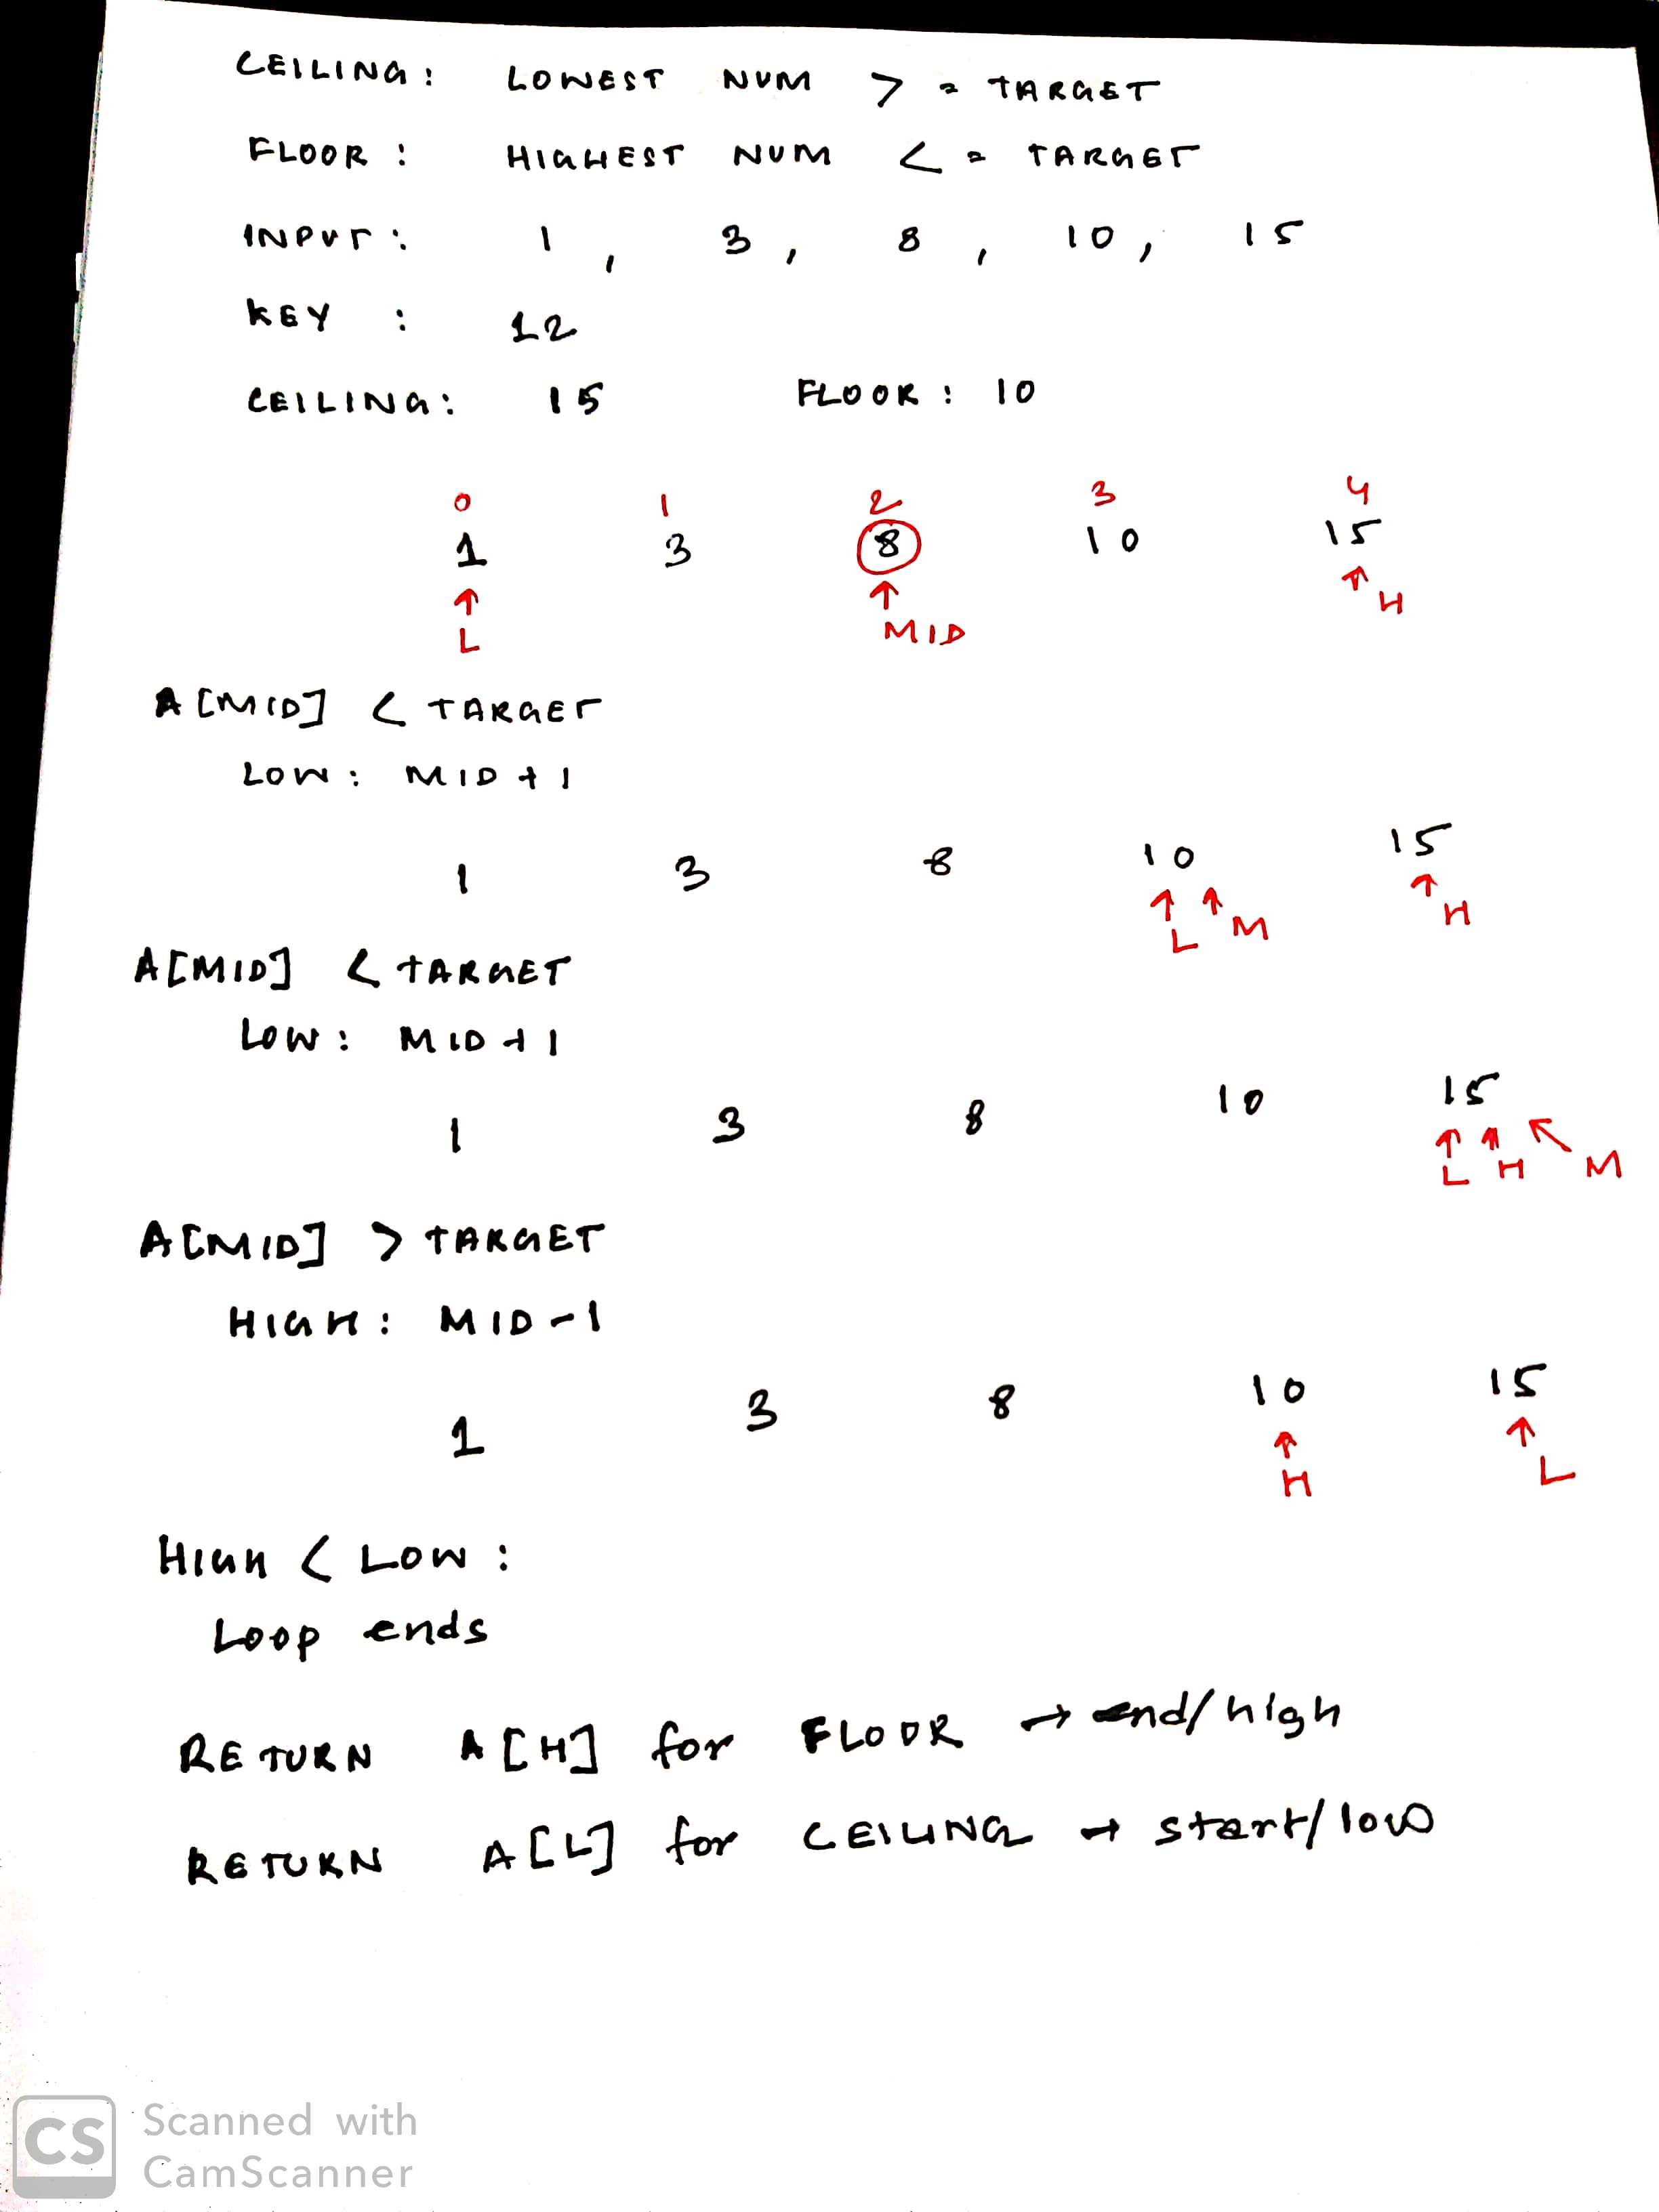 CEILING: LOWEST NUM >= TARGET
FLOOR: HIGHEST NUM <= TARGET
INPUT: 1, 3, 8, 10, 15
KEY : 12
CEILING: 15 FLOOR: 10
0 1 2 3 4
1 3 8 10 15
↑ ↑ ↑
L MID H
A[MID] < TARGET
LOW: MID+1
1 3 8 10 15
↑ ↑ ↑
L M H
A[MID] < TARGET
LOW: MID+1
1 3 8 10 15
↑ ↑ ↖
L H M
A[MID] > TARGET
HIGH: MID-1
1 3 8 10 15
↑ ↑
H L
HIGH < LOW:
Loop ends
RETURN A[H] for FLOOR → end/high
RETURN A[L] for CEILING → start/low
CS Scanned with
CamScanner